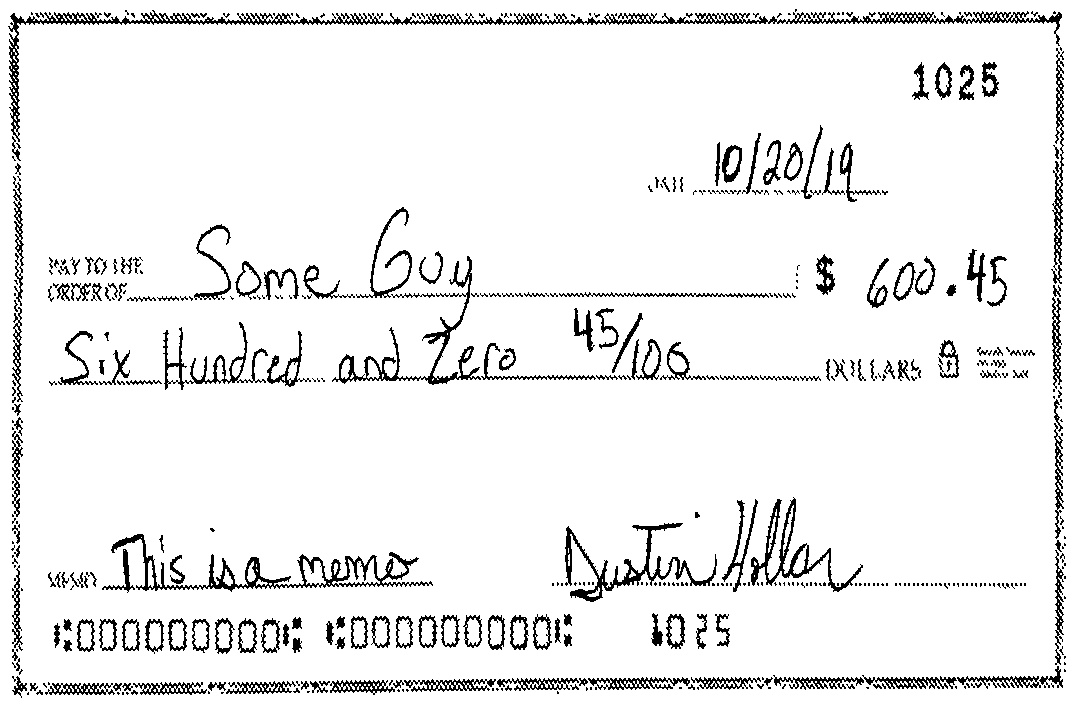 1025
DATE 10/20/19
PAY TO THE
ORDER OF Some Guy $ 600.45
Six Hundred and Zero 45/100 DOLLARS
MEMO This is a memo Dustin Hollar
⑆000000000⑆ ⑆000000000⑆ 1025